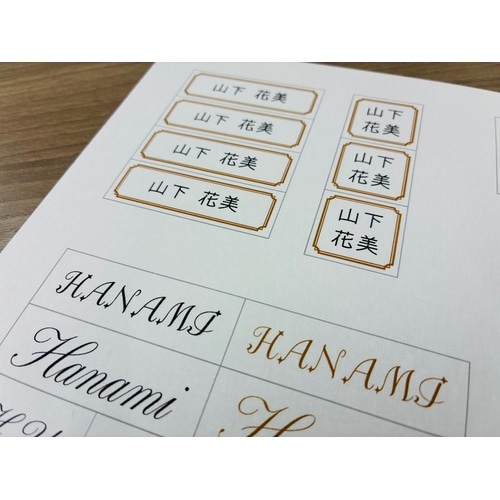 山下 花美
山下 花美
山下 花美
山下 花美
山下
花美
山下
花美
山下
花美
HANAMI
HANAMI
Hanami